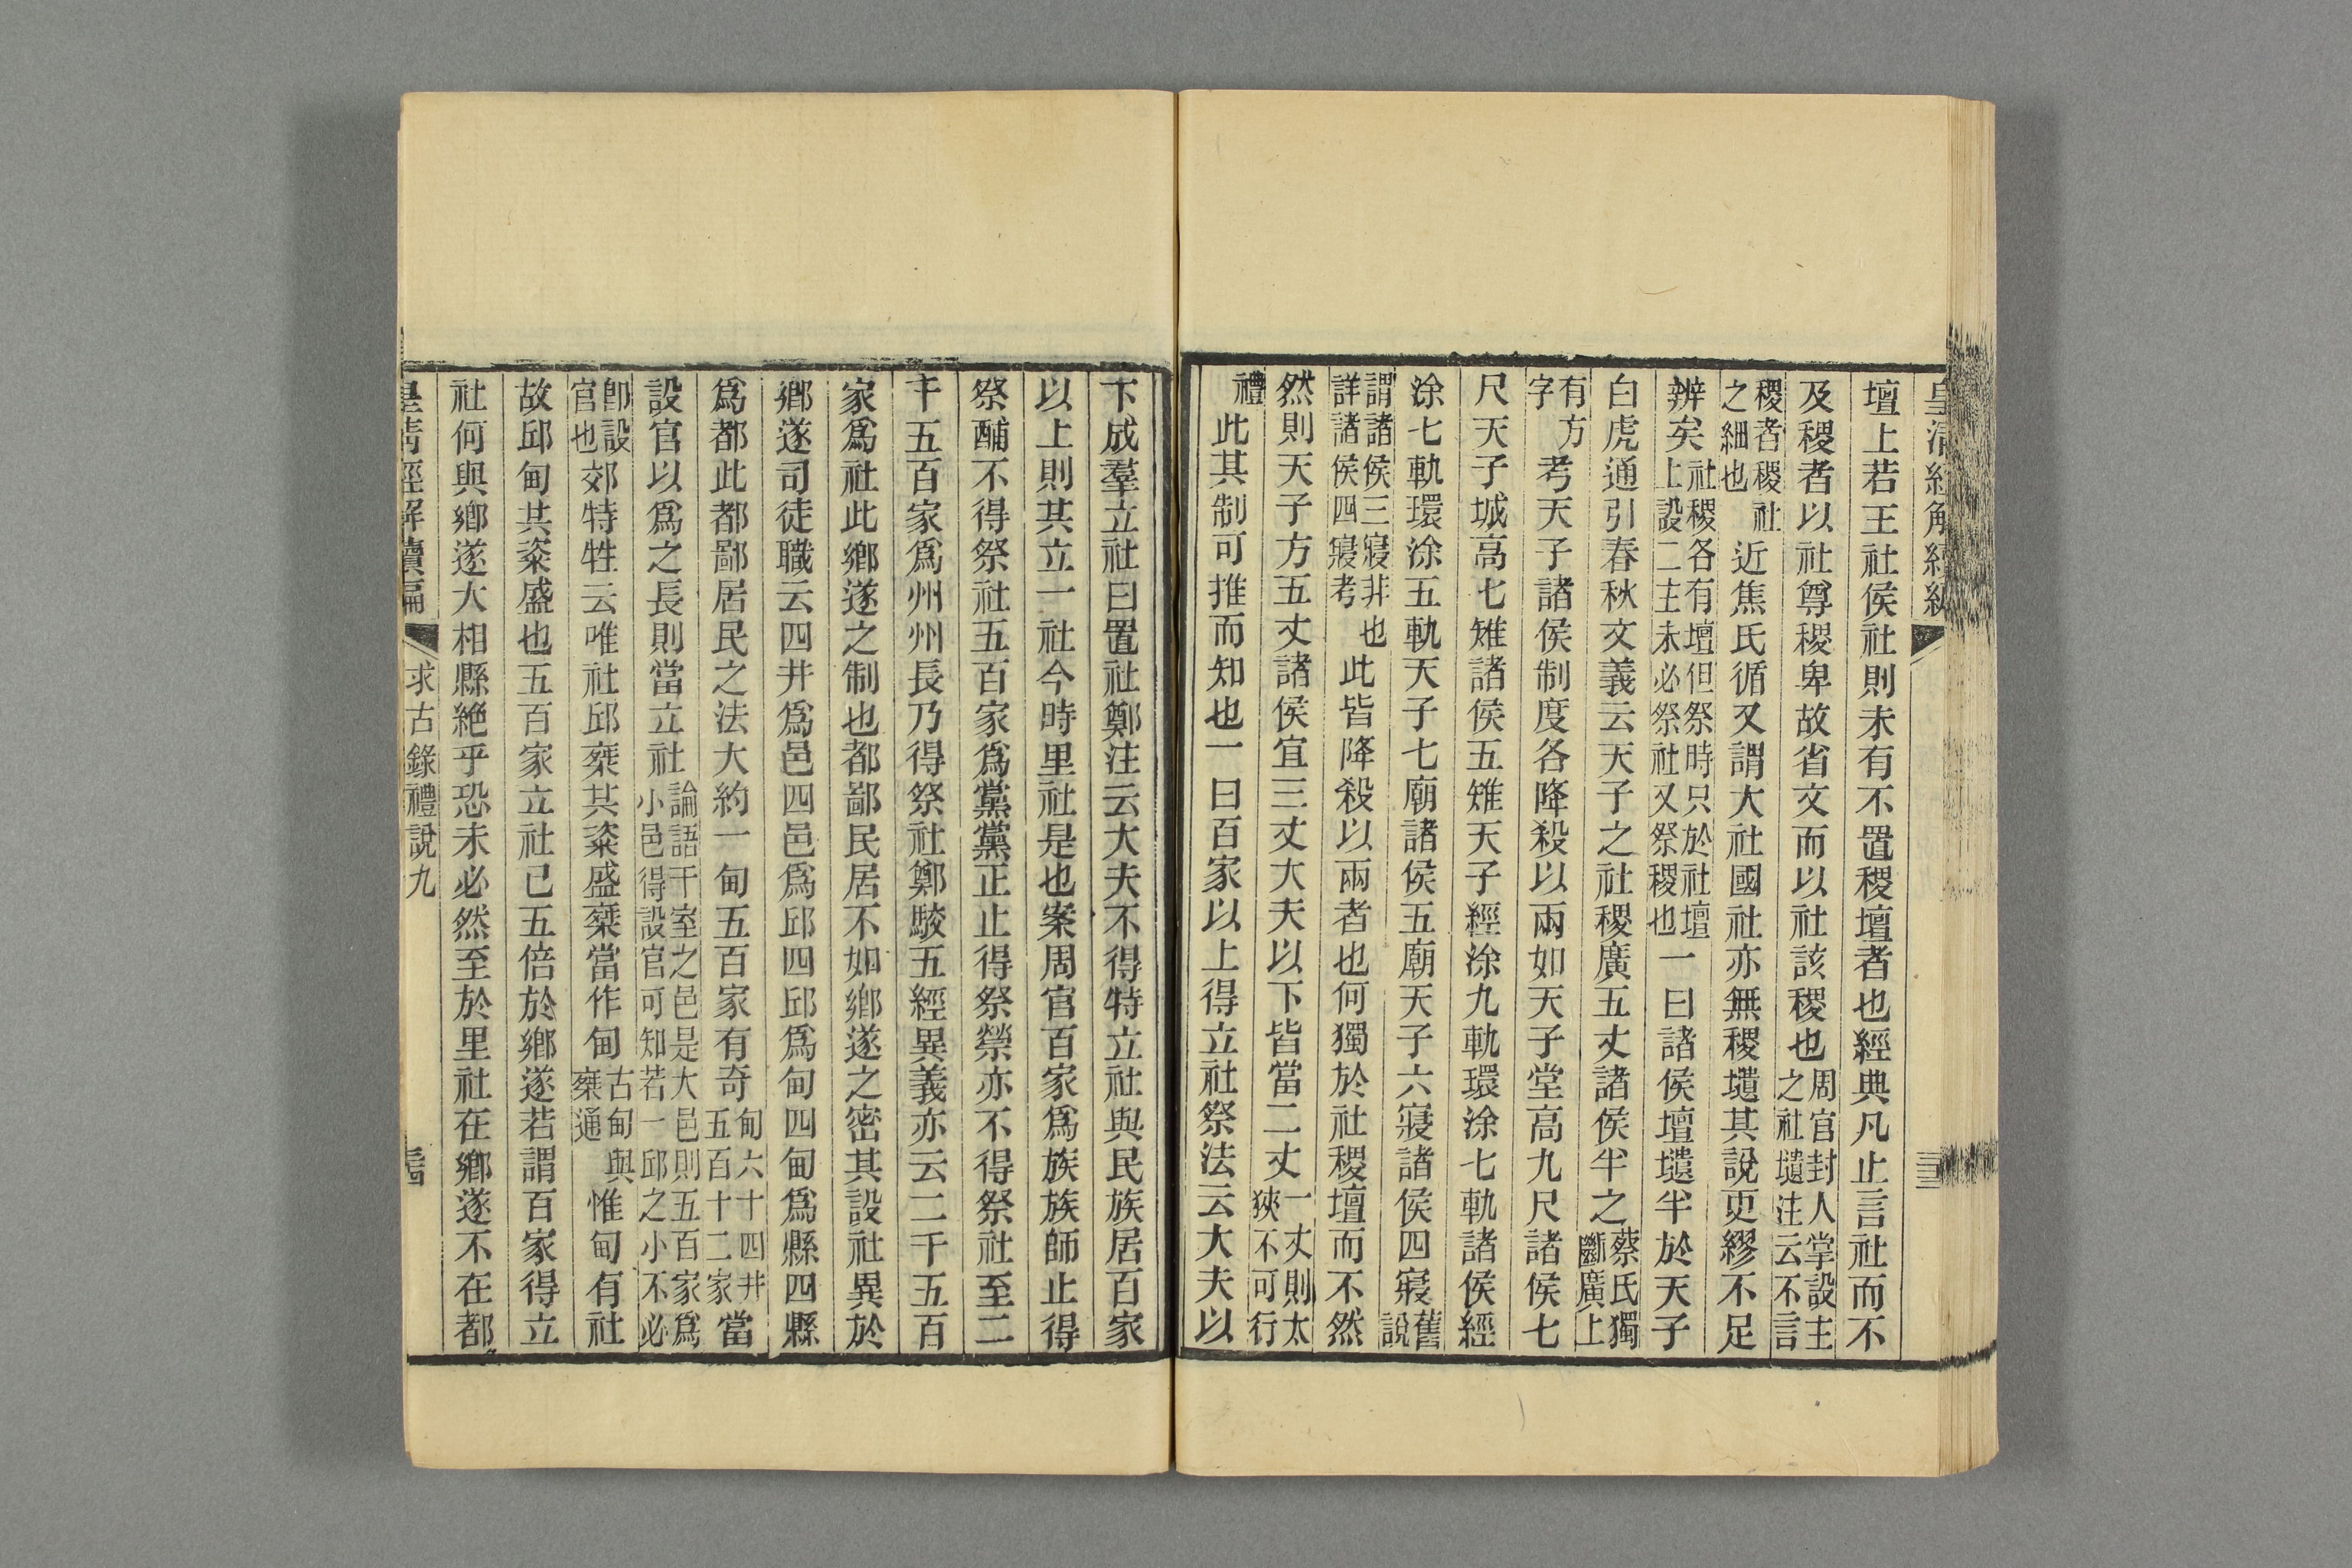 皇清經解續編
三三
壇上若王社侯社則未有不置稷壇者也經典凡止言社而不
及稷者以社尊稷卑故省文而以社該稷也周官封人掌設主之社壝注云不言
稷者稷社之細也近焦氏循又謂大社國社亦無稷壝其說更繆不足
辨矣社稷各有壇但祭時只於社壇上設二主未必祭社又祭稷也一曰諸侯壇壝半於天子
白虎通引春秋文義云天子之社稷廣五丈諸侯半之蔡氏獨斷廣上
有方字考天子諸侯制度各降殺以兩如天子堂高九尺諸侯七
尺天子城高七雉諸侯五雉天子經涂九軌環涂七軌諸侯經
涂七軌環涂五軌天子七廟諸侯五廟天子六寢諸侯四寢舊說
謂諸侯三寢非也詳諸侯四寢考此皆降殺以兩者也何獨於社稷壇而不然
然則天子方五丈諸侯宜三丈大夫以下皆當二丈一丈則太狹不可行
禮此其制可推而知也一曰百家以上得立社祭法云大夫以
下成羣立社曰置社鄭注云大夫不得特立社與民族居百家
以上則其立一社今時里社是也案周官百家爲族族師止得
祭酺不得祭社五百家爲黨黨正止得祭禜亦不得祭社至二
千五百家爲州州長乃得祭社鄭駮五經異義亦云二千五百
家爲社此鄉遂之制也都鄙民居不如鄉遂之密其設社異於
鄉遂司徒職云四井爲邑四邑爲邱四邱爲甸四甸爲縣四縣
爲都此都鄙居民之法大約一甸五百家有奇甸六十四井五百十二家當
設官以爲之長則當立社論語千室之邑是大邑則五百家爲小邑得設官可知若一邱之小不必
卽設官也郊特牲云唯社邱椉其粢盛椉當作甸古甸與椉通惟甸有社
故邱甸共粢盛也五百家立社已五倍於鄉遂若謂百家得立
社何與鄉遂大相縣絕乎恐未必然至於里社在鄉遂不在都
皇清經解續編
求古錄禮說九
三四